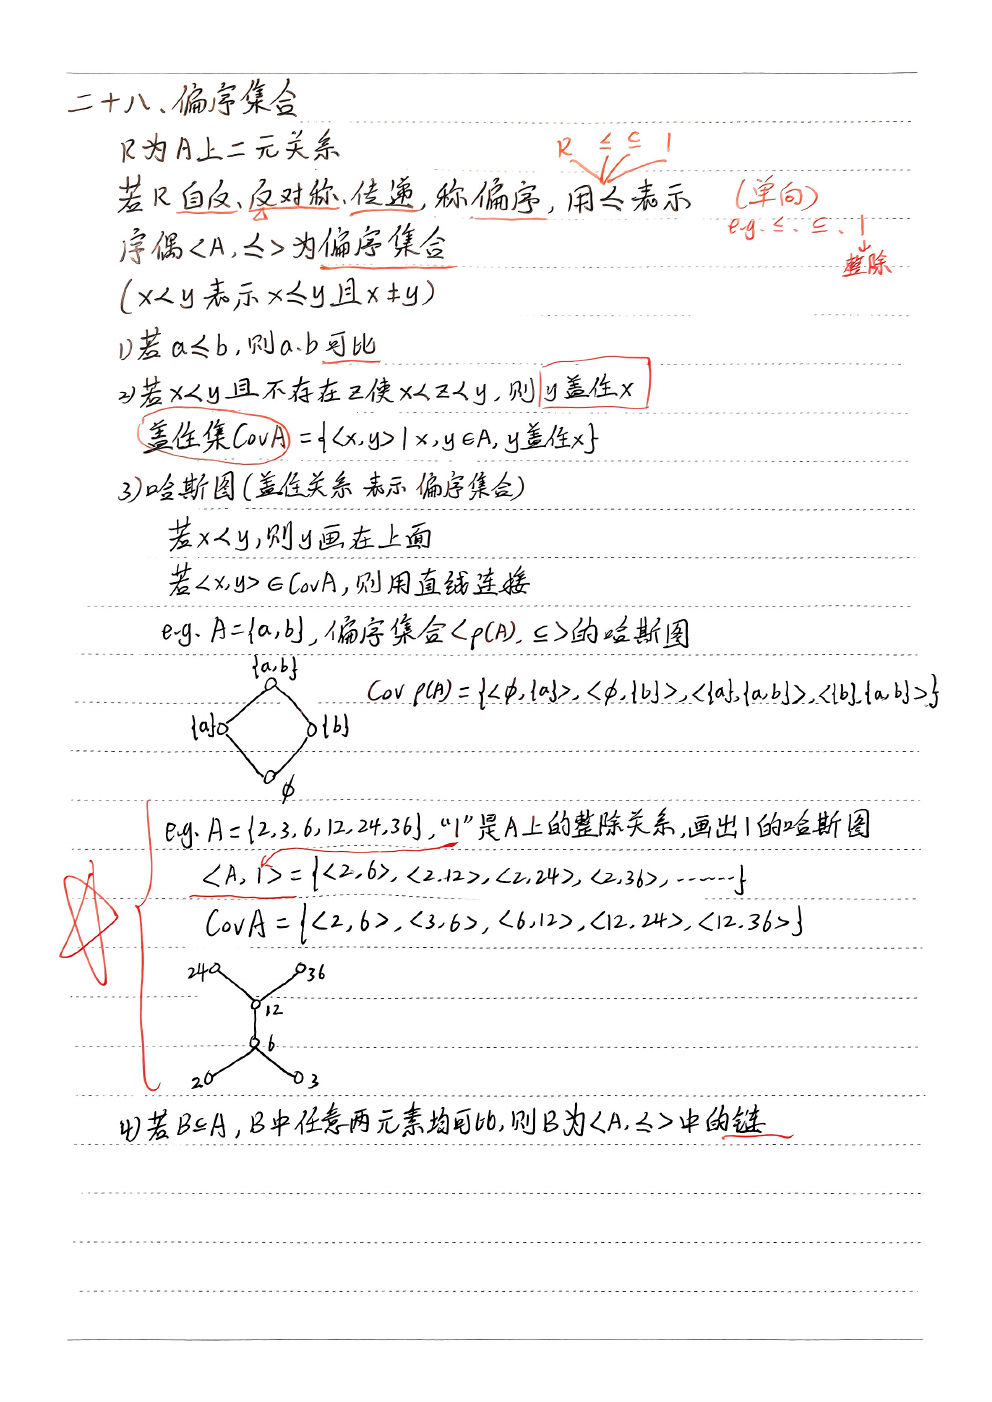 二十八、偏序集合
R为A上二元关系
R ≤ ⊆ |
若R自反、反对称、传递,称偏序,用≼表示
(单向)
e.g. ≤、⊆、|
整除
序偶<A,≼>为偏序集合
(x≺y表示x≼y且x≠y)
1)若a≼b,则a、b可比
2)若x≺y且不存在z使x≺z≺y,则y盖住x
盖住集CovA={<x,y>|x,y∈A,y盖住x}
3)哈斯图(盖住关系表示偏序集合)
若x≺y,则y画在上面
若<x,y>∈CovA,则用直线连接
e.g. A={a,b},偏序集合<ρ(A),⊆>的哈斯图
{a,b}
Cov ρ(A)={<ϕ,{a}>,<ϕ,{b}>,<{a},{a,b}>,<{b},{a,b}>}
{a} {b}
ϕ
e.g. A={2,3,6,12,24,36},“|”是A上的整除关系,画出|的哈斯图
<A,|>={<2,6>,<2,12>,<2,24>,<2,36>,……}
CovA={<2,6>,<3,6>,<6,12>,<12,24>,<12,36>}
24 36
12
6
2 3
4)若B⊆A,B中任意两元素均可比,则B为<A,≼>中的链